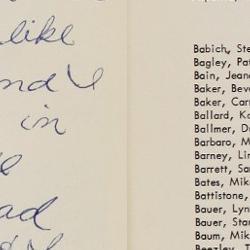 like
nd
in
ad
Babich, Ste
Bagley, Pat
Bain, Jean
Baker, Bev
Baker, Car
Ballard, Ka
Ballmer, D
Barbaro, M
Barney, Lin
Barrett, Sa
Bates, Mik
Battistone,
Bauer, Lyn
Bauer, Star
Baum, Mik
Beezley, T